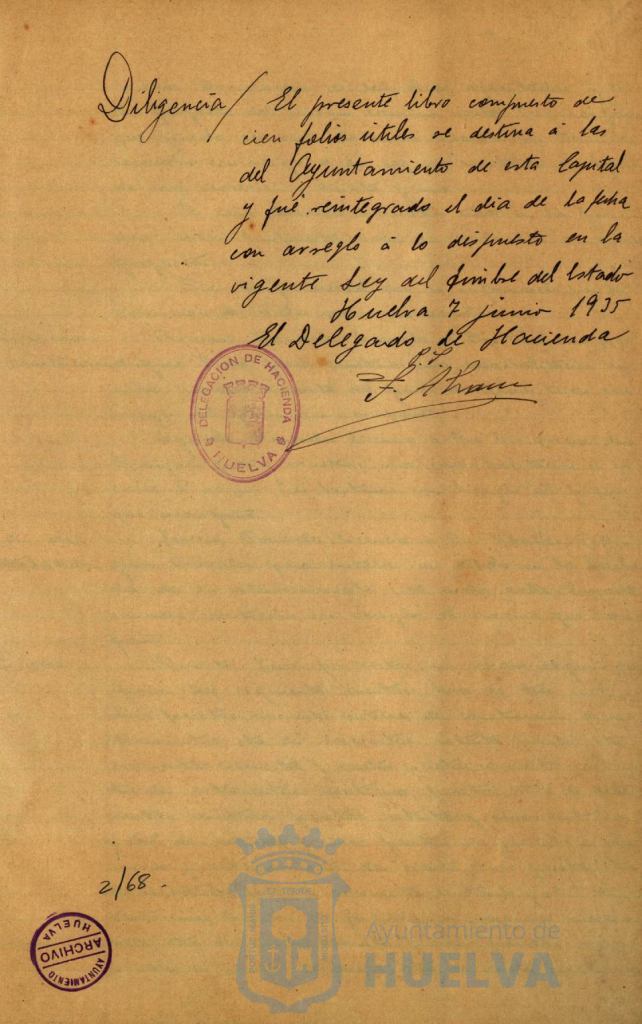 Diligencia / El presente libro compuesto de
cien folios útiles se destina á las
del Ayuntamiento de esta Capital
y fué reintegrado el dia de la fecha
con arreglo á lo dispuesto en la
vigente Ley del timbre del Estado
Huelva 7 junio 1935
El Delegado de Hacienda
DELEGACION DE HACIENDA
HUELVA
2/68.
AYUNTAMIENTO
ARCHIVO
HUELVA
Ayuntamiento de
HUELVA